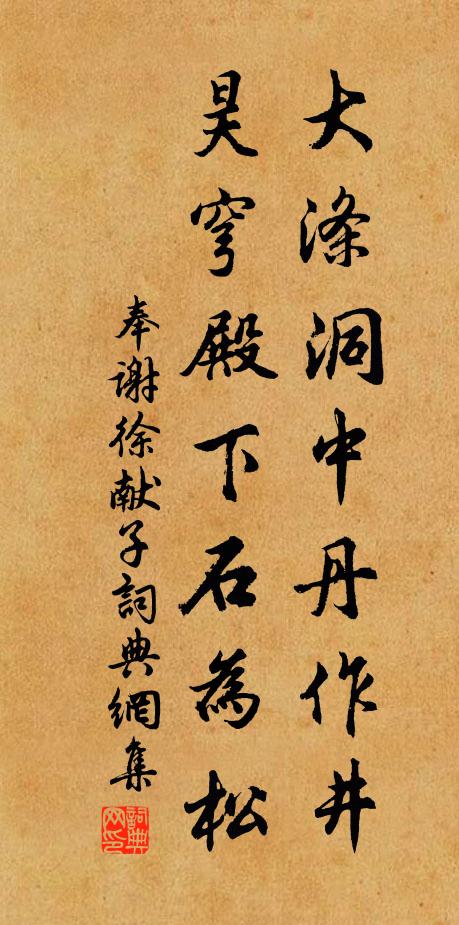 大滌洞中丹作井
昊穹殿下石為松
奉謝徐献子詞典網集
詞典網印